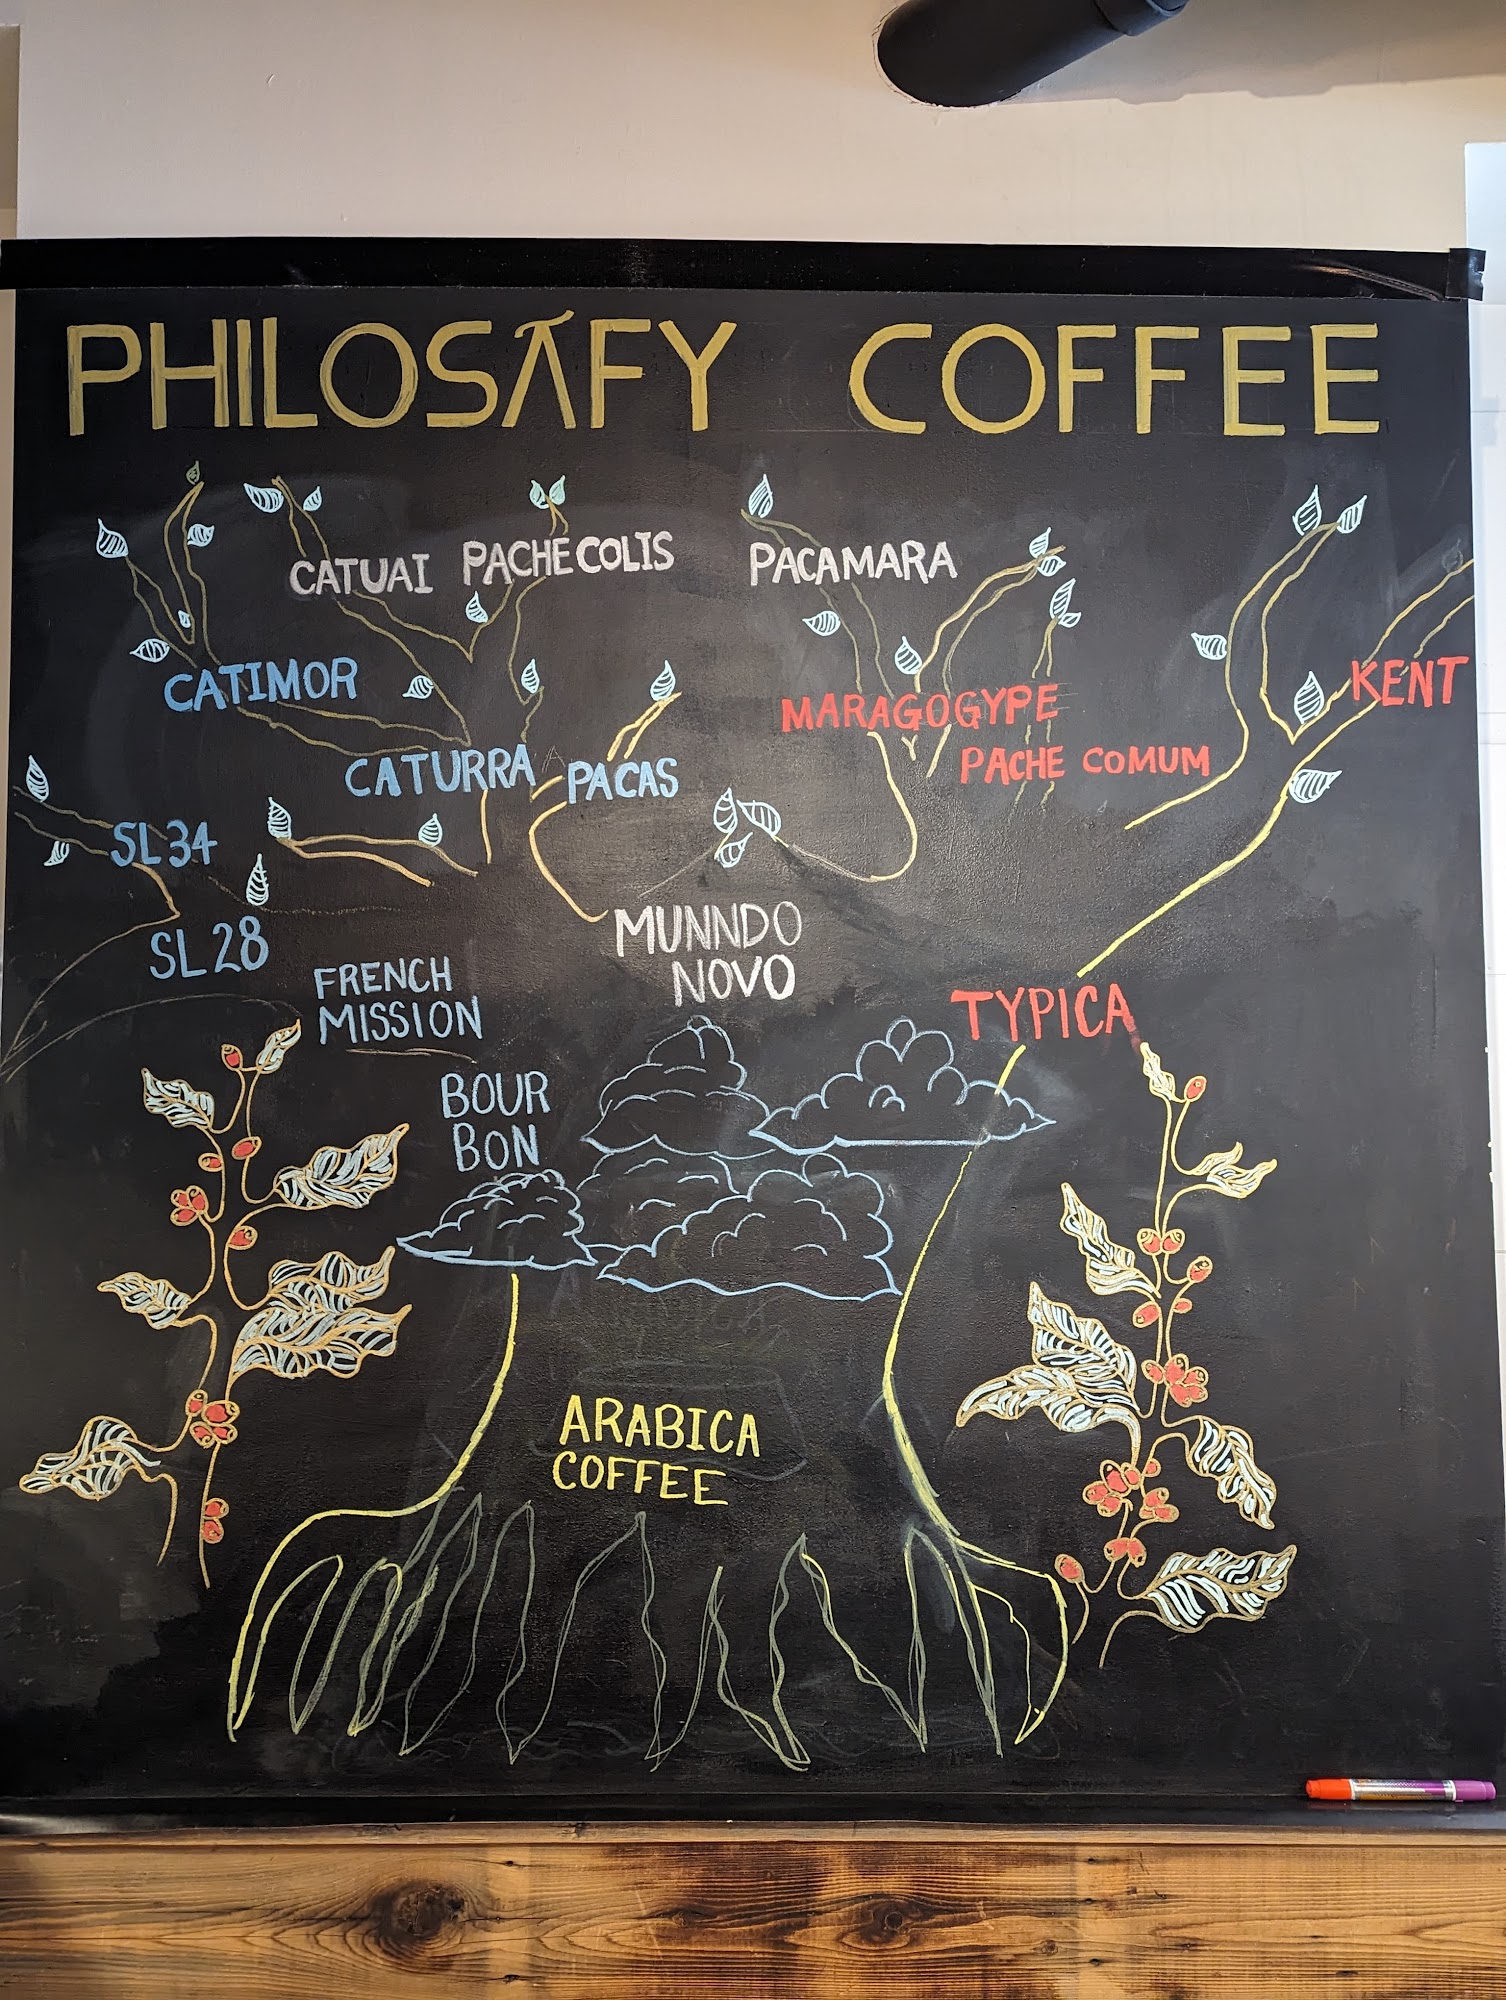 PHILOSAFY COFFEE
CATUAI PACHE COLIS PACAMARA
CATIMOR
MARAGOGYPE
KENT
CATURRA PACAS
PACHE COMUM
SL34
SL28
MUNNDO
NOVO
FRENCH
MISSION
TYPICA
BOUR
BON
ARABICA
COFFEE